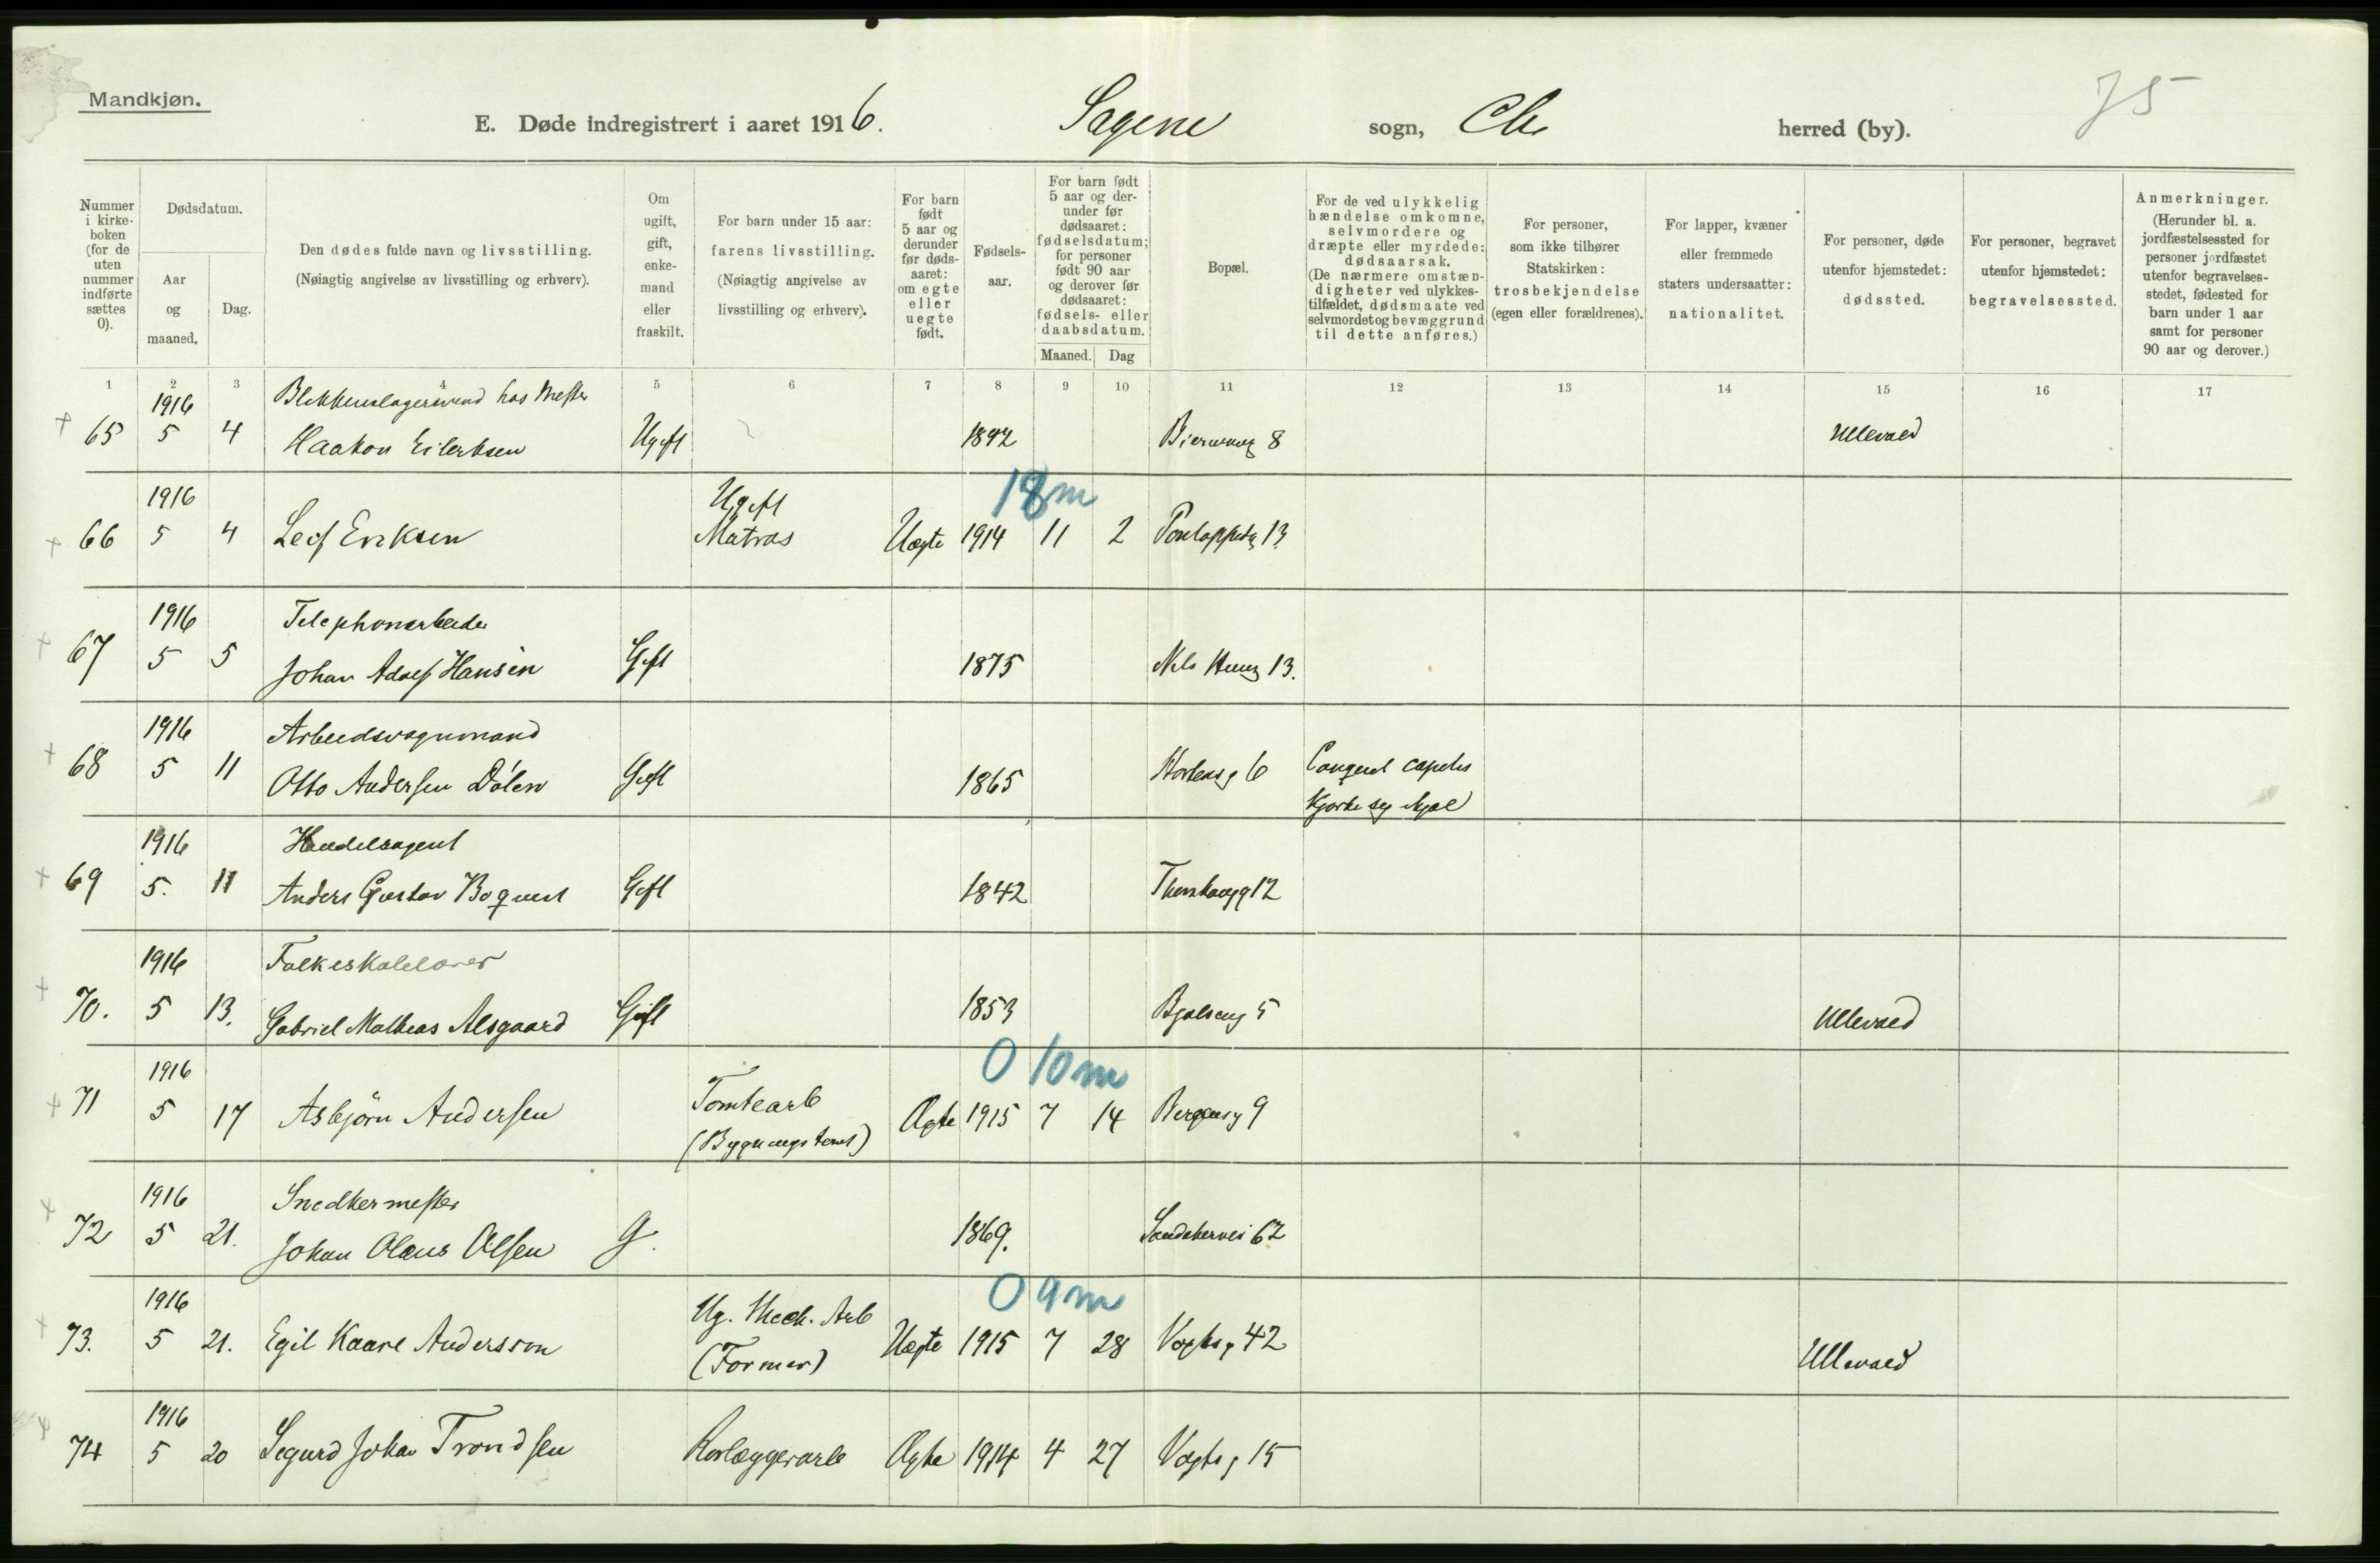 Mandkjøn.
75
E. Døde indregistrert i aaret 1916. Sagene sogn, Chr herred (by).
Nummer i kirke-boken (for de uten nummer indførte sættes 0).
Dødsdatum.
Aar og maaned.
Dag.
Den dødes fulde navn og livsstilling.
(Nøiagtig angivelse av livsstilling og erhverv).
Om ugift, gift, enke-mand eller fraskilt.
For barn under 15 aar: farens livsstilling.
(Nøiagtig angivelse av livsstilling og erhverv).
For barn født 5 aar og derunder før døds-aaret: om egte eller uegte født.
Fødsels-aar.
For barn født 5 aar og der-under før dødsaaret: fødselsdatum; for personer født 90 aar og derover før dødsaaret: fødsels- eller daabsdatum.
Maaned. Dag
Bopæl.
For de ved ulykkelig hændelse omkomne, selvmordere og dræpte eller myrdede: dødsaarsak.
(De nærmere omstæn-digheter ved ulykkes-tilfældet, dødsmaate ved selvmordet og bevæggrund til dette anføres.)
For personer, som ikke tilhører Statskirken: trosbekjendelse (egen eller forældrenes).
For lapper, kvæner eller fremmede staters undersaatter: nationalitet.
For personer, døde utenfor hjemstedet: dødssted.
For personer, begravet utenfor hjemstedet: begravelsessted.
Anmerkninger.
(Herunder bl. a. jordfæstelsessted for personer jordfæstet utenfor begravelses-stedet, fødested for barn under 1 aar samt for personer 90 aar og derover.)
1 2 3 4 5 6 7 8 9 10 11 12 13 14 15 16 17
1916 Blikkenslagersvend hos Mester
65 5 4 Haakon Eilertsen Ugift 1892 8 Ullevaal
1916 Ugift 18 m
66 5 4 Leif Eriksen Matros Uegte 1914 11 2 13
1916 Telephonarbeider
67 5 5 Johan Adolf Hansen Gift 1875 Nils 13.
1916 Arbeidsvognmand
68 5 11 Otto Andersen Dölen Gift 1865 6
1916 Handelsagent
69 5. 11 Anders Gustav Boquist Gift 1842 12
1916 Folkeskolelærer
70. 5 13. Gabriel Mathias Alsgaard Gift 1853 5 Ullevaal
1916 0 10 m
71 5 17 Asbjörn Andersen Tomtearb Ægte 1915 7 14 Bergensg 9
(Bygningstomt)
1916 Snedkermester
72 5 21. Johan Olaus Olsen G. 1869. Sandakervei 62
1916 0 9 m
Ug. Mech. Arb
73. 5 21. Egil Kaare Andersson (Former) Uegte 1915 7 28 Vogtsg 42 Ullevaal
1916
74 5 20 Sigurd Johan Trondsen Rørlæggerarb Ægte 1914 4 27 Vogtsg 15